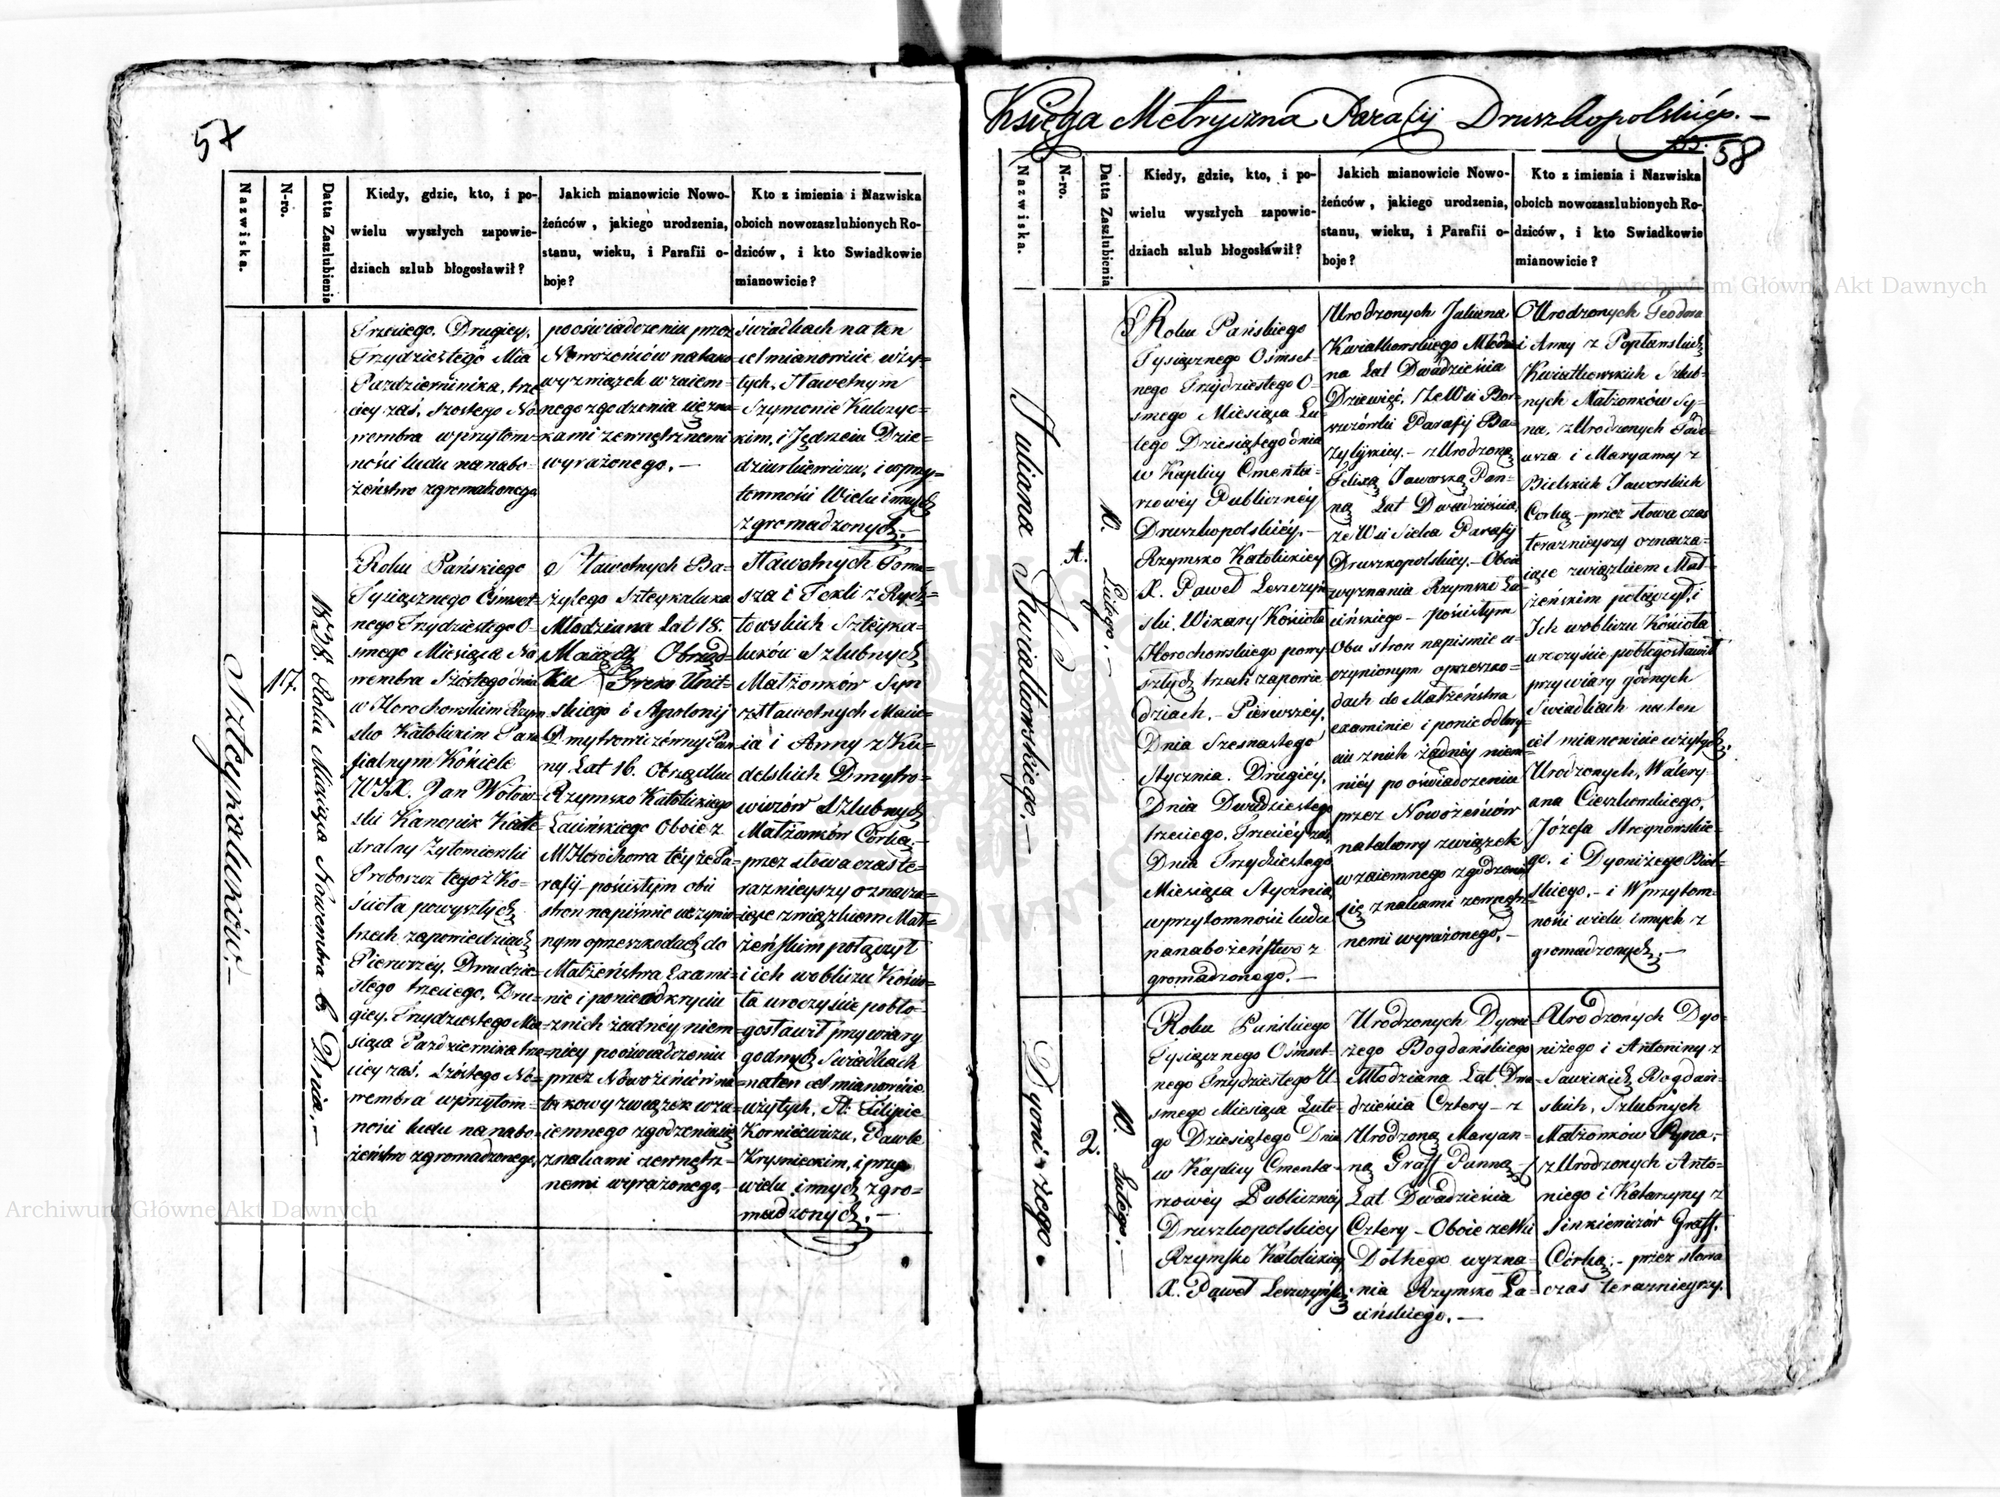 57
Nazwiska.
N-ro.
Datta Zaszlubienia
Kiedy, gdzie, kto, i po-
wielu wyszłych zapowie-
dziach szlub błogosławił?
Jakich mianowicie Nowo-
żeńców, jakiego urodzenia,
stanu, wieku, i Parafii o-
boje?
Kto z imienia i Nazwiska
oboich nowozaszlubionych Ro-
dziców, i kto Swiadkowie
mianowicie?
Trzeciego. Drugiey,
Trzydziestego Mia
Pazdziernika, trze
ciey zaś, szostego No-
wembra w przytom-
ności ludu na nabo-
żeństwo zgromadzonego
po oświadczeniu przez
Nowożeńców na tako
wy związek wzaiem-
nego zgodzenia się zna-
kami zewnętrznemi
wyrażonego. —
świadkach na ten
cel mianowicie wzy-
tych, Sławetnym
Szymonie Kulczyc-
kim, i Jędrzeiu Dzie-
dziurkiewiczu, i w przy-
tomności Wielu innych
zgromadzonych. —
Szteykaluków. —
17.
1838. Roku Miesiąca Nowembra 6. Dnia. —
Roku Pańskiego
Tysiącznego Ośmset-
nego Trzydziestego O-
smego Miesiąca No
wembra Szóstego dnia
w Horochowskim Rzym
sko Katolickim Para
fialnym Kościele
W.J.X. Jan Wołow-
ski Kanonik Kate
dralny Zytomierski
Proboszcz tegoż Ko-
ścioła po wyszłych
trzech zapowiedziach
Pierwszey, Dwudzie-
stego trzeciego, Dru-
giey, Trzydziestego Mie-
siąca Pazdziernika trze-
ciey zaś, szóstego No-
wembra w przytom-
ności ludu na nabo-
żeństwo zgromadzonego.
Sławetnych Ba-
zylego Szteykaluka
Młodziana Lat 18.
Maiącz Obrząd-
ku Greko Unit-
skiego i Apolonij
Dmytrowiczówny Pan
ny Lat 16. Obrządku
Rzymsko Katolickiego
Łacińskiego Oboie z
M Horochowa teyże Pa-
rafij - pościstym obu
stron napiśmie uczynio-
nym o przeszkodach do
Małżeństwa Exami-
nie i po nieodkryciu
z nich żadnéy niem-
nicy po oświadczeniu
przez Nowożeńców na
takowy związek wza-
iemnego zgodzenia się
znakami zewnętrz-
nemi wyrażonego. —
Sławetnych Toma-
sza i Tekli z Rych-
towskich Szteyka-
luków Szlubnych
Małżonków Syn
z Sławetnych Macie-
ia i Anny z Ku-
delskich Dmytro-
wiczów Szlubnych
Małżonków Córką. —
przez słowa czas te-
raznieyszy oznacza-
iące związkiem Mał-
żeńskim połączył
i ich w obliczu Kościo-
ła uroczyście pobło-
gosławił przy wiary
godnych Swiadkach
na ten cel mianowicie
wżytych, St. Filipie
Korniewiczu, Pawle
Krysnieckim, i przy
wielu innych zgro-
madzonych. —
Księga Metryczna Parafij Druszkopolskiéy. —
58
Nazwiska.
N-ro.
Datta Zaszlubienia
Kiedy, gdzie, kto, i po-
wielu wyszłych zapowie-
dziach szlub błogosławił?
Jakich mianowicie Nowo-
żeńców, jakiego urodzenia,
stanu, wieku, i Parafii o-
boje?
Kto z imienia i Nazwiska
oboich nowozaszlubionych Ro-
dziców, i kto Swiadkowie
mianowicie?
Juliana Kwiatkowskiego. —
1.
10. Lutego. —
Roku Pańskiego
Tysiącznego Ośmset-
nego Trzydziestego O-
smego Miesiąca Lu-
tego Dziesiątego dnia
w Kaplicy Cmenta-
rzowéy Publicznéy
Druszkopolskiéy. —
Rzymsko Katolickiey
X. Paweł Leszczyń
ski. Wikary Kościoła
Horochowskiego po wy-
szłych trzech zapowie-
dziach. — Pierwszéy,
Dnia Szesnastego
Stycznia. Drugiéy,
Dnia Dwudziestego
trzeciego, Trzeciéy zaś,
Dnia Trzydziestego
Miesiąca Stycznia,
w przytomności ludu
na nabożeństwo z
gromadzonego. —
Urodzonych Juliana
Kwiatkowskiego Młodzia
na Lat Dwadzieścia
Dziewięć, zeWsi Bor-
szczówki Parafij Ba-
zylijskiey. — z Urodzoną
Felixą Jaworską Pan-
ną Lat Dwadzieścia,
ze Wsi Sielca Parafij
Druszkopolskiey. — Oboie
wyznania Rzymsko Ła-
cińskiego — po ścisłym
Obu stron napismie u-
czynionym o przeszko-
dach do Małżeństwa
examinie i po nie odkry-
ciu z nich żadnéy niem-
nicéy po oświadczeniu
przez Nowożeńców
na takowy związek
wzaiemnego zgodzenia
się znakami zewnętrz-
nemi wyrażonego. —
Urodzonych Teodora
i Anny z Popławskich
Kwiatkowskich Szlub-
nych Małżonków Sy-
na. z Urodzonych Tade-
usza i Maryanny z
Bielskich Jaworskich
Corką — przez słowa czas
teraznieyszy oznacza-
iące związkiem Mał-
żeńskim połączył, i
Ich w obliczu Kościoła
uroczyście pobłogosławił
przy wiary godnych
Swiadkach na ten
cel mianowicie wżytych,
Urodzonych, Walery
ana Cieszkowskiego,
Józefa Stroynowskie-
go, i Dyonizego Biel-
skiego. — i W przytom-
ności wielu innych z
gromadzonych. —
Dyonizego.
2.
10. Lutego. —
Roku Pańskiego
Tysiącznego Ośmset-
nego Trzydziestego O-
smego Miesiąca Lute-
go Dziesiątego Dnia
w Kaplicy Cmenta-
rzowéy Publicznéy
Druszkopolskiey
Rzymsko Katolickiey
X. Paweł Leszczyński
Urodzonych Dyoni-
zego Bogdańskiego
Młodziana Lat Dwa-
dzieścia Cztery — z
Urodzoną Maryan-
ną Graff Panną —
Lat Dwadzieścia
Cztery — Oboie ze Wsi
Dołhego wyzna-
nia Rzymsko Ła-
cińskiego. —
Urodzonych Dyo-
niżego i Antoniny z
Sawickich Bogdań-
skich, Szlubnych
Małżonków Syna, —
z Urodzonych Anto-
niego i Katarzyny z
Sinkiewiczów Graff.
Córką; — przez słowa
czas teraznieyszy.
Archiwum Główne Akt Dawnych
Archiwum Główne Akt Dawnych